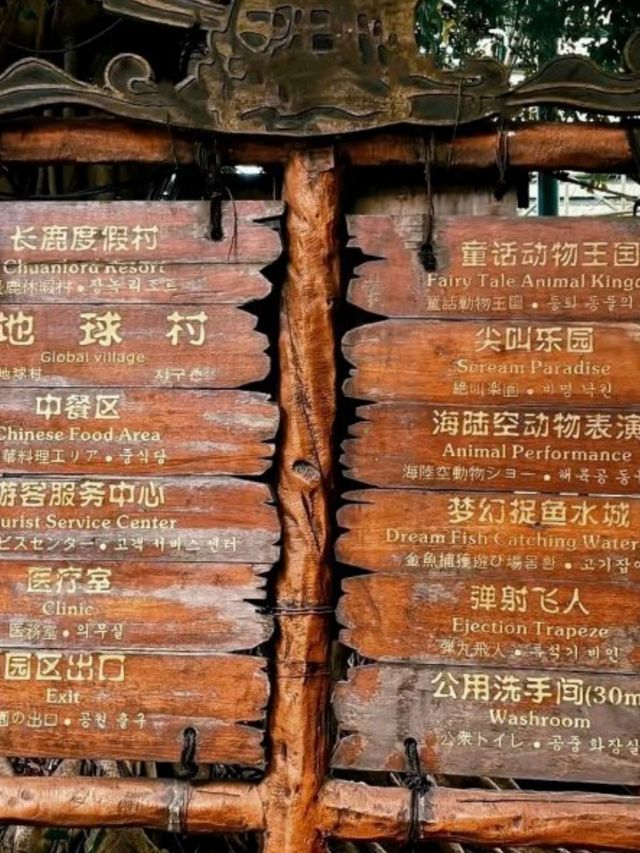 长鹿度假村
Chuanlord Resort
長鹿休暇村 • 잠녹리조트
地球村
Global village
地球村 지구촌
中餐区
Chinese Food Area
華料理エリア • 중식당
游客服务中心
ourist Service Center
ビスセンター • 고객 서비스 센터
医疗室
Clinic
医務室 • 의무실
园区出口
Exit
園の出口 • 공원 출구
童话动物王国
Fairy Tale Animal Kingd
童話動物王国 • 동화 동물의
尖叫乐园
Scream Paradise
絶叫楽園 • 비명 낙원
海陆空动物表演
Animal Performance
海陸空動物ショー • 해륙공 동
梦幻捉鱼水城
Dream Fish Catching Water
金魚捕獲遊び場 • 고기잡이
弹射飞人
Ejection Trapeze
弾丸飛人 • 투석기 비인
公用洗手间(30m
Washroom
公衆トイレ • 공중 화장실